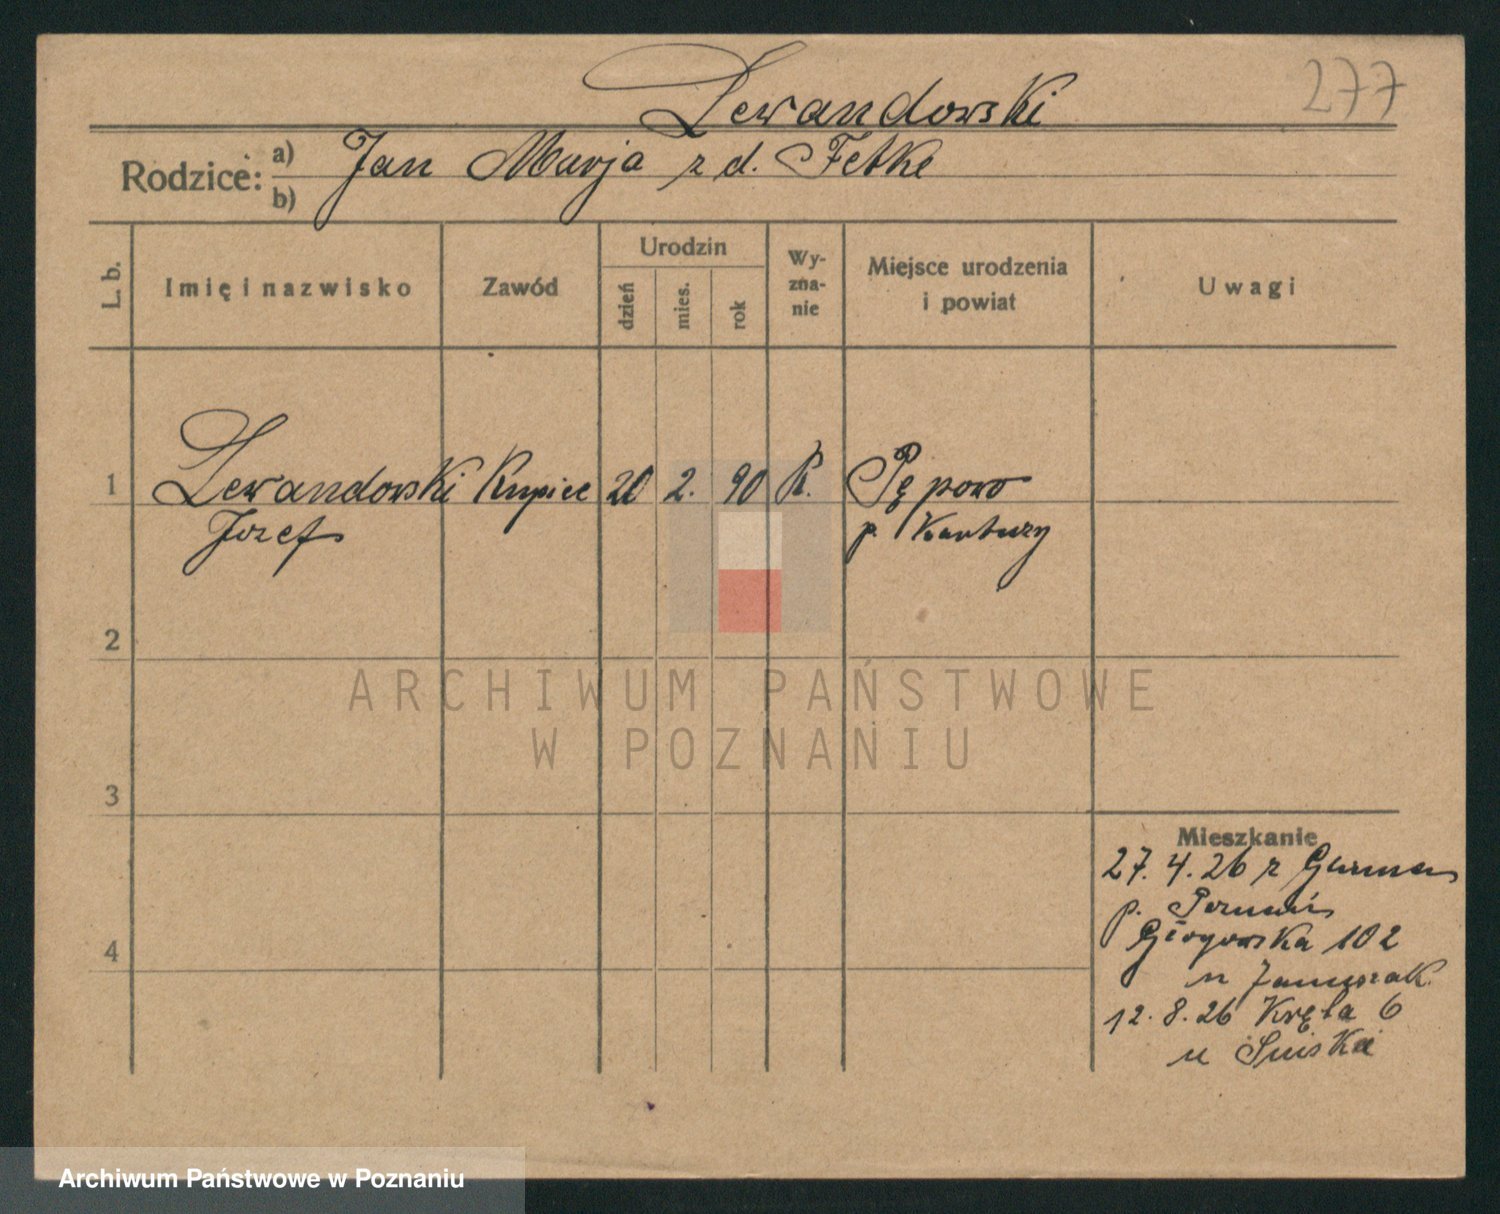 277
Lewandowski
Rodzice:
a) Jan Marja z d. Fetke
b)
L. b.
Imię i nazwisko
Zawód
Urodzin
dzień
mies.
rok
Wy-
zna-
nie
Miejsce urodzenia
i powiat
Uwagi
1 Lewandowski Kupiec 20 2. 90 R. Pępowo
Józef p. Kartuzy
2
3
4
ARCHIWUM PAŃSTWOWE
W POZNANIU
Mieszkanie
27. 4. 26 z
p. Poznań
Głogowska 102
u
12. 8. 26 Kręta 6
u
Archiwum Państwowe w Poznaniu